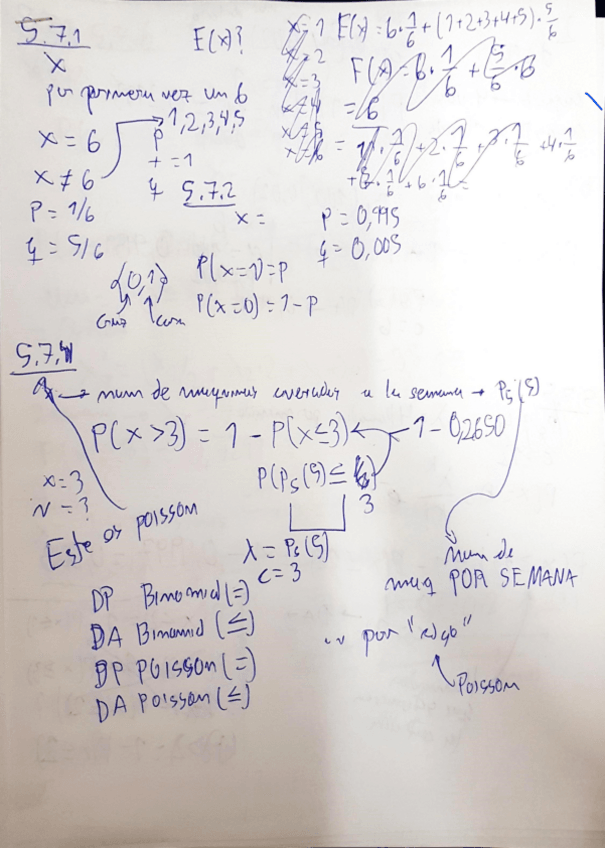 5.7.1
E(x)?
x
por primera vez un 6
1,2,3,4,5
x = 6
x ≠ 6
P = 1/6
q = 5/6
p
+ = 1
q
x=1
x=2
x=3
x=4
x=5
x=6
E(x) = 6·1/6 + (1+2+3+4+5)·5/6
= 6
5.7.2
x =
P = 0,995
q = 0,005
(0,1)
cruz cara
P(x=1) = P
P(x=0) = 1-P
5.7.4
x → num de maquinas averiadas a la semana → Ps(5)
P(x>3) = 1 - P(x≤3) ← 1-0,2650
P(Ps(5) ≤ 3)
x = 3
Este es poisson
λ = Ps(5)
c = 3
num de
maq POR SEMANA
DP Binomial (=)
DA Binomial (≤)
DP POISSON (=)
DA POISSON (≤)
... por "algo"
Poisson